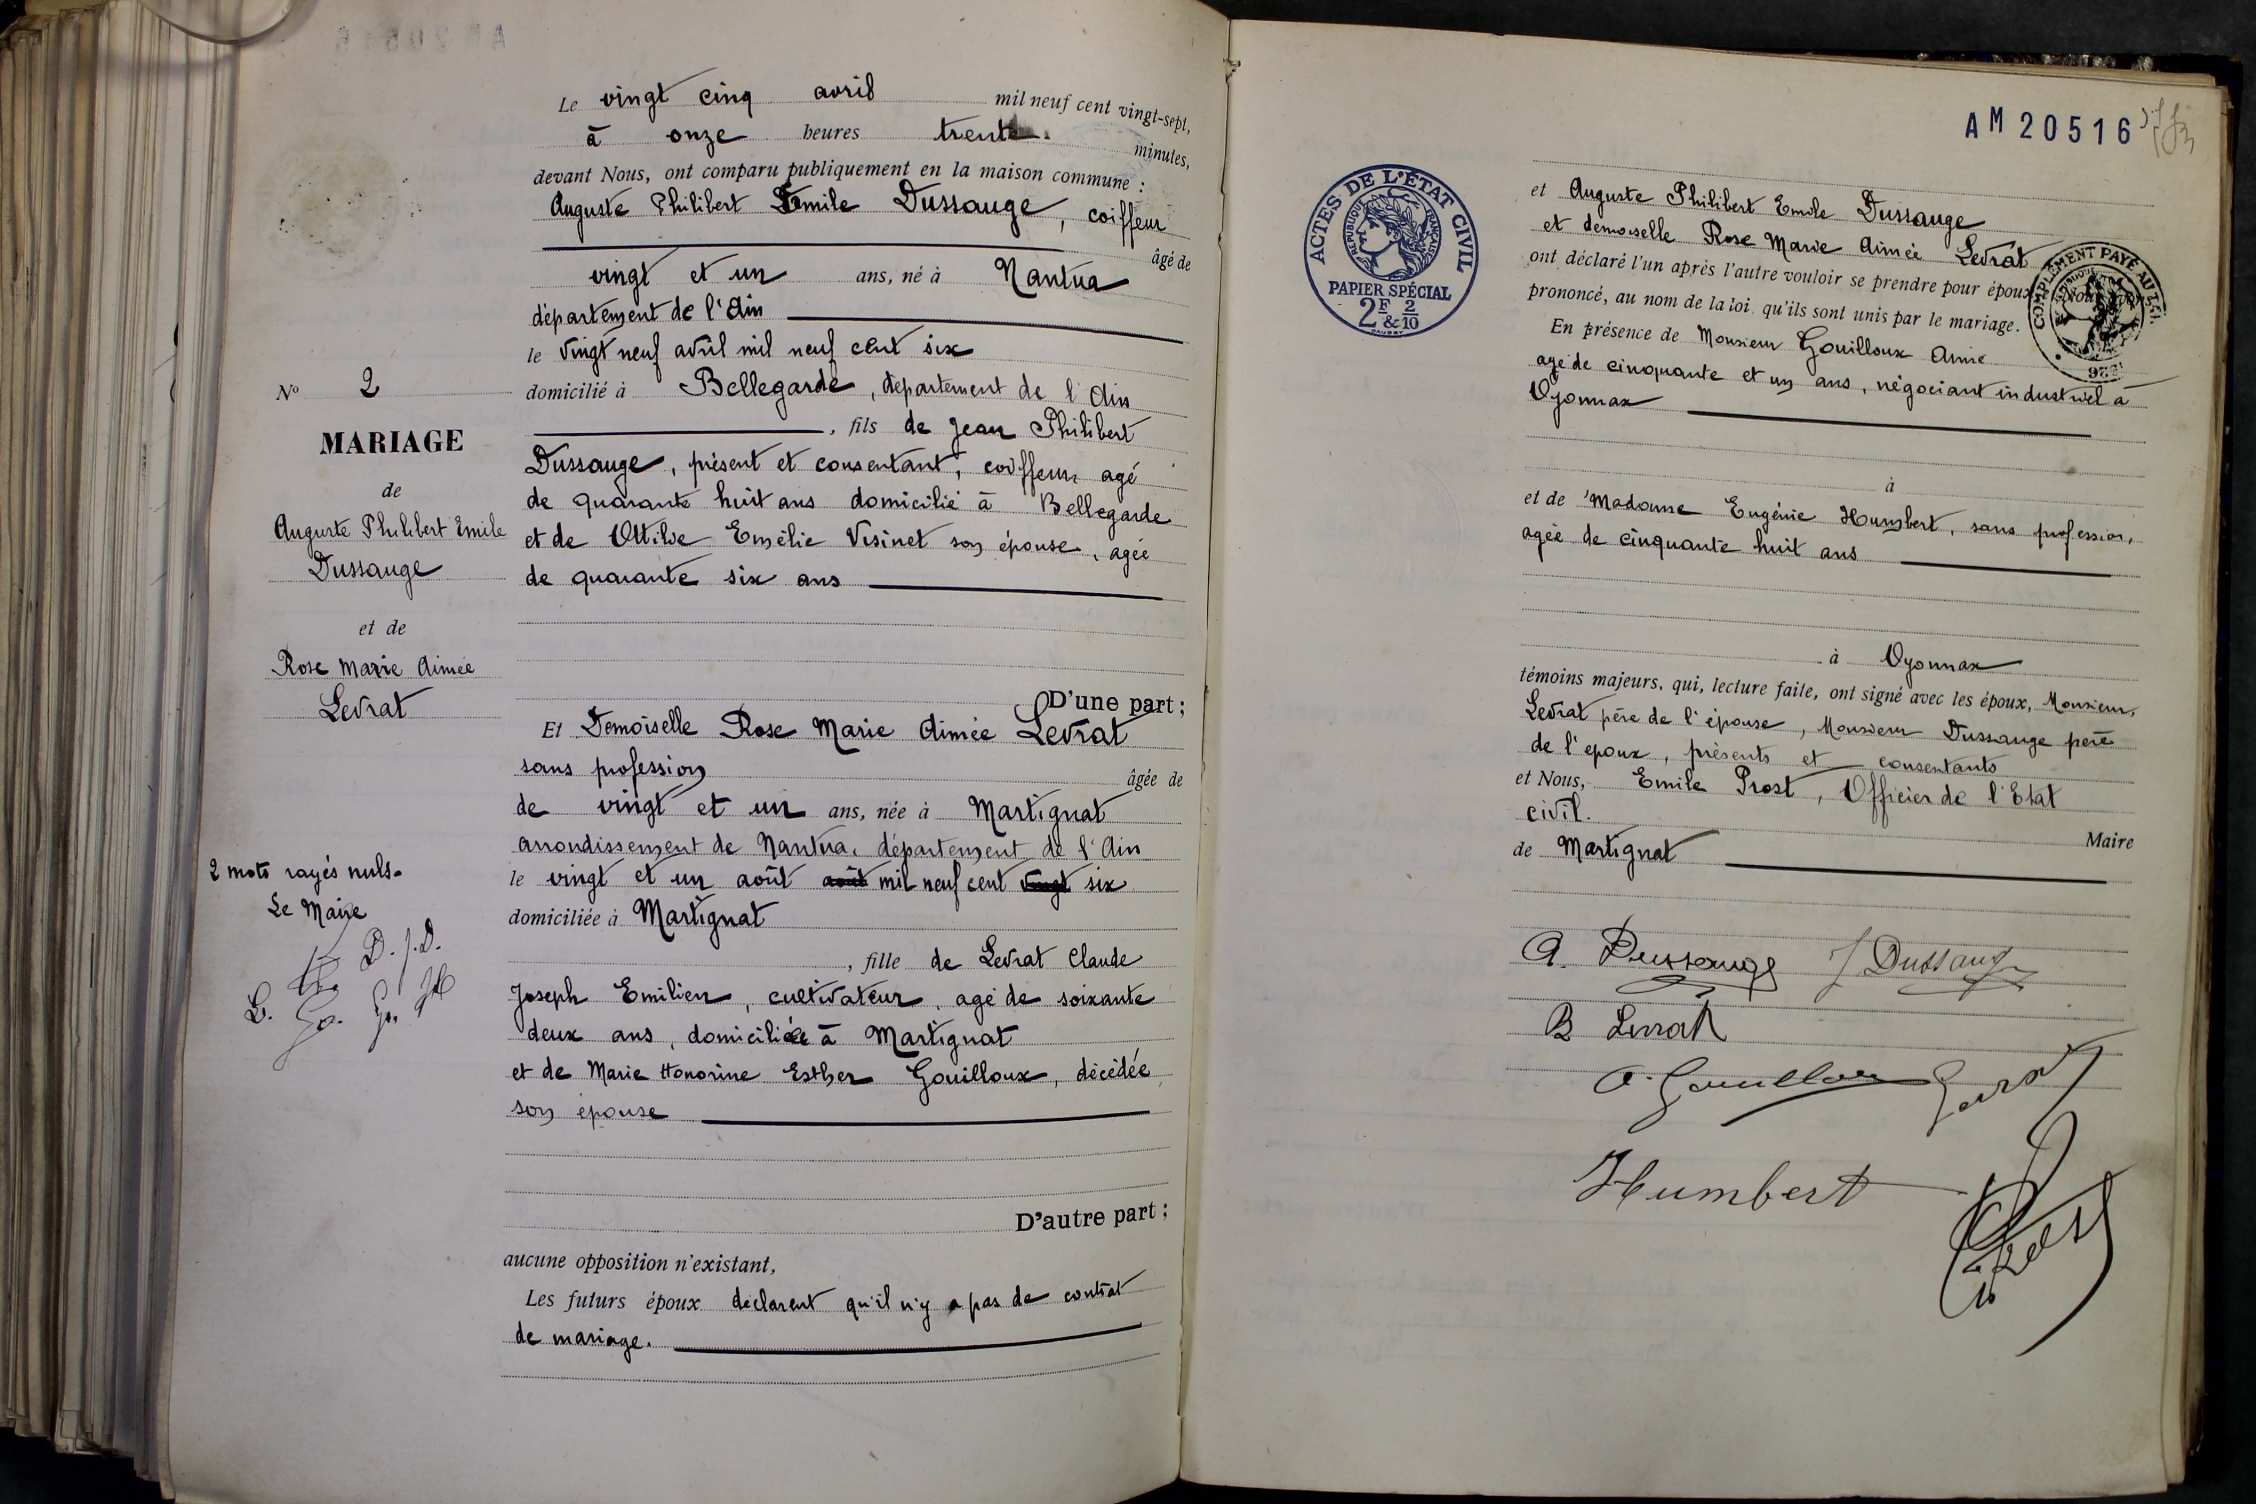 Le vingt cinq avril mil neuf cent vingt-sept,
à onze heures trente minutes,
devant Nous, ont comparu publiquement en la maison commune :
Auguste Philibert Emile Dussauge, coiffeur
âgé de
vingt et un ans, né à Nantua
département de l'Ain
le vingt neuf avril mil neuf cent six
domicilié à Bellegarde, département de l'Ain
, fils de Jean Philibert
Dussauge, présent et consentant, coiffeur agé
de quarante huit ans domicilié à Bellegarde
et de Ottilde Emélie Visinet son épouse, agée
de quarante six ans
D'une part ;
Et Demoiselle Rose Marie Aimée Levrat
sans profession âgée de
de vingt et un ans, née à Martignat
arrondissement de Nantua, département de l'Ain
le vingt et un août août mil neuf cent vingt six
domiciliée à Martignat
, fille de Levrat Claude
Joseph Emilien, cultivateur, agé de soixante
deux ans, domicilié à Martignat
et de Marie Honorine Esther Gouilloux, décédée
son épouse
D'autre part ;
aucune opposition n'existant,
Les futurs époux déclarent qu'il n'y a pas de contrat
de mariage.
N° 2
MARIAGE
de
Auguste Philibert Emile
Dussauge
et de
Rose Marie Aimée
Levrat
2 mots rayés nuls.
Le Maire
D. J.D.
AM 20516
ACTES DE L'ÉTAT CIVIL
RÉPUBLIQUE FRANÇAISE
PAPIER SPÉCIAL
2F & 2/10
et Auguste Philibert Emile Dussauge
et demoiselle Rose Marie Aimée Levrat
ont déclaré l'un après l'autre vouloir se prendre pour époux
prononcé, au nom de la loi, qu'ils sont unis par le mariage.
COMPLÉMENT PAYÉ
En présence de Monsieur Gouilloux Aimé
agé de cinquante et un ans, négociant industriel à
Oyonnax
à
et de Madame Eugénie Humbert, sans profession,
agée de cinquante huit ans
à Oyonnax
témoins majeurs, qui, lecture faite, ont signé avec les époux, Monsieur,
Levrat père de l'épouse, Monsieur Dussauge père
de l'epoux, présents et consentants
et Nous, Emile Prost, Officier de l'Etat
civil.
Maire
de Martignat
A. Dussauge J Dussauge
R Levrat
A. Gouilloux
Humbert